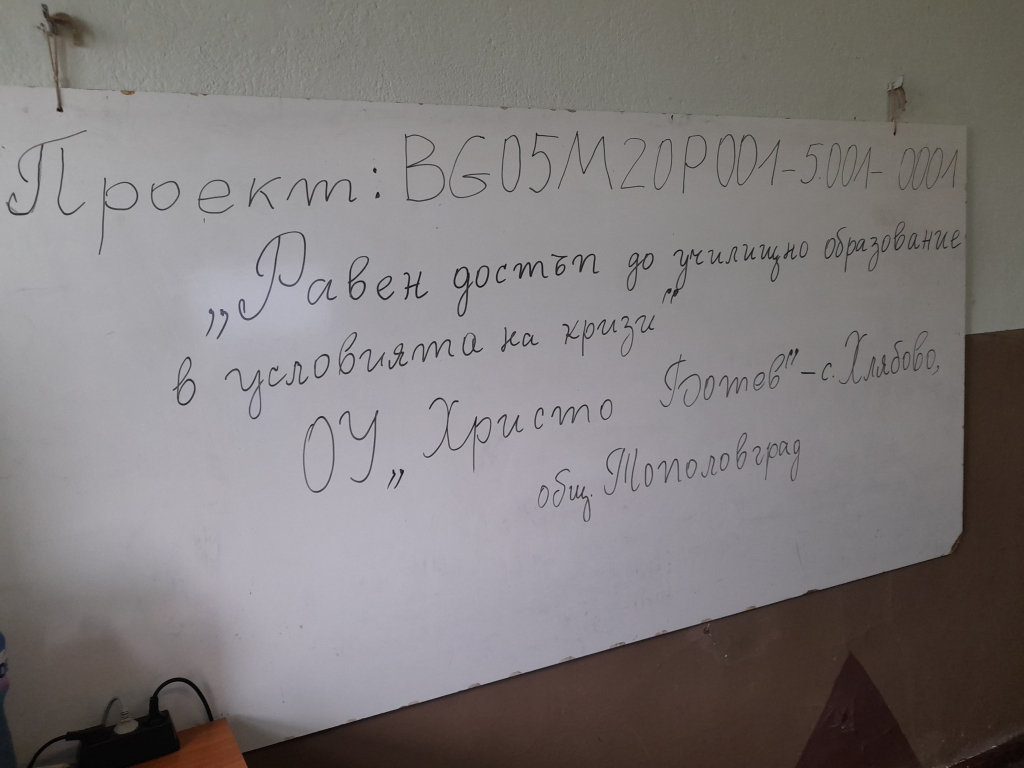 Проект: BG05M20P001-5.001-0001
„Равен достъп до училищно образование
в условията на кризи"
ОУ „Христо Ботев" – с. Хлябово,
общ. Тополовград